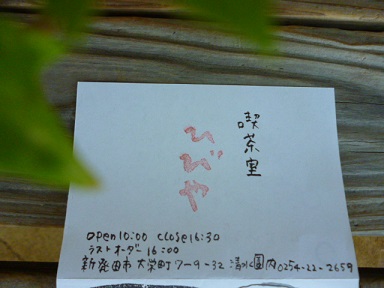 喫茶室
ひびや
open10:00 close16:30
ラストオーダー16:00
新発田市大栄町7-9-32 清水園内0254-22-2659